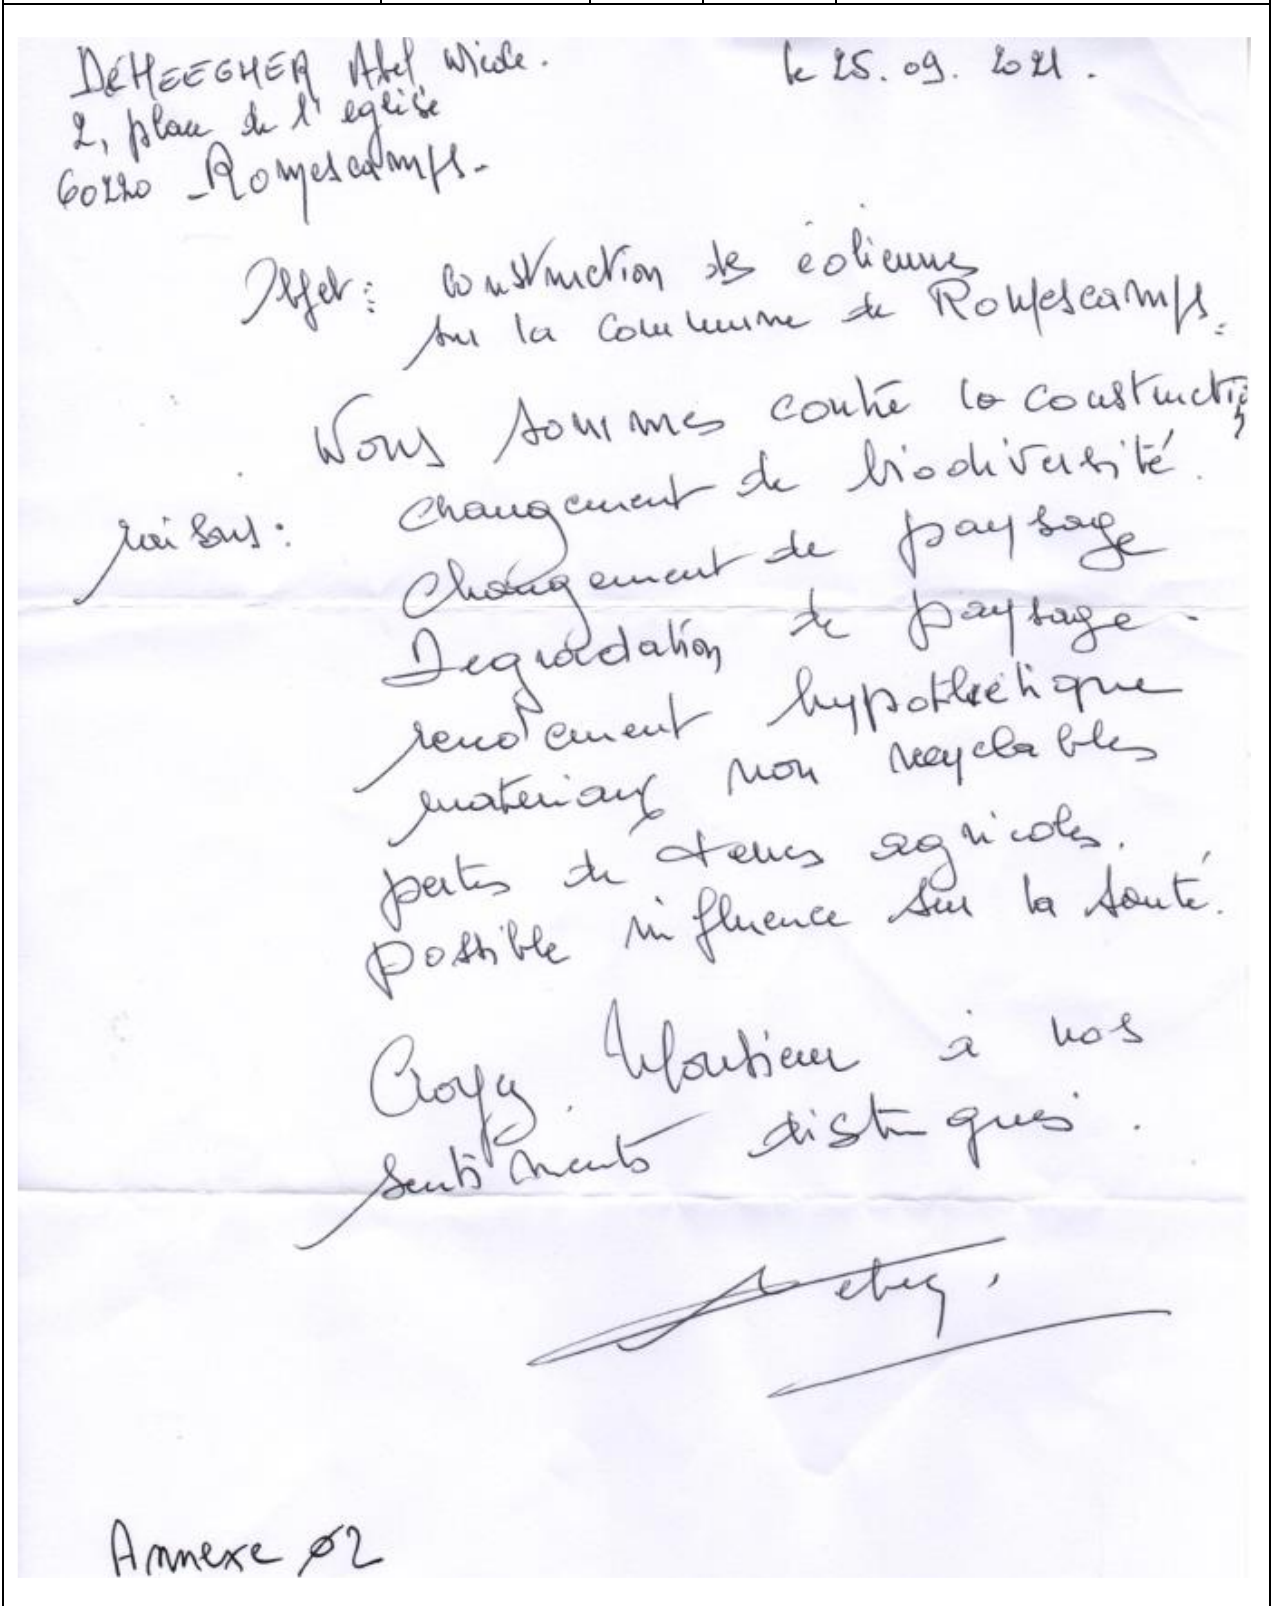 DÉHEEGHER Abel Nicole.
le 25. 09. 2021.
2, place de l'église
60220 - Romescamps.
Objet : construction des éoliennes
sur la commune de Romescamps.
Nous sommes contre la constructi
raisons : changement de biodiversité.
changement de paysage
Dégradation de paysage -
rendement hypothétique
materiaux non recyclables
pertes de terres agricoles.
possible influence sur la santé.
Croyez Monsieur à nos
sentiments distingués.
Annexe 02